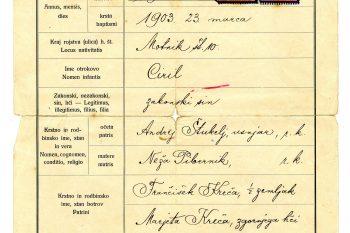 Annus, mensis,
dies
krsta
baptismi
1903 23 marca
Kraj rojstva (ulica) h. št.
Locus nativitatis
Motnik št. 10.
Ime otrokovo
Nomen infantis
Ciril
Zakonski, nezakonski,
sin, hči — Legitimus,
illegitimus, filius, filia
zakonski sin
Krstno in rod-
binsko ime, stan
in vera
Nomen, cognomen,
conditio, religio
očeta
patris
Andrej Štukelj, usnjar, r. k.
matere
matris
Neža Pibernik, r. k.
Krstno in rodbinsko
ime, stan botrov
Patrini
Frančišek Kreča, ½ zemljak
Marjeta Kreča, zgornjega hči